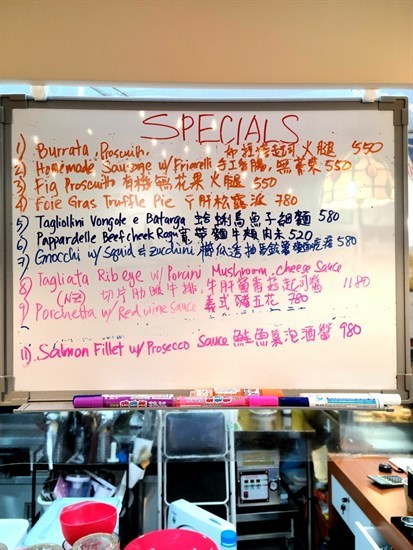 SPECIALS
1) Burrata, Prosciutto. 布拉塔起司火腿 550
2) Homemade Sausage w/ Friarelli 手工香腸, 蕪菁菜 550
3) Fig Prosciutto 有機無花果火腿 550
4) Foie Gras Truffle Pie 肝松露派 780
5) Tagliollini Vongole e Batarga 蛤蜊烏魚子細麵 580
6) Pappardelle Beef cheek Ragu 寬帶麵牛頰肉末 520
7) Gnocchi w/ Squid & Zucchini 櫛瓜透抽 580
8) Tagliata Ribeye w/ Porcini Mushroom, cheese Sauce
(NZ) 切片肋眼牛排, 牛肝菌香菇起司醬 1180
9) Porchetta w/ Red wine Sauce 義式豬五花 780
11). Salmon Fillet w/ Prosecco Sauce 鮭魚氣泡酒醬 980